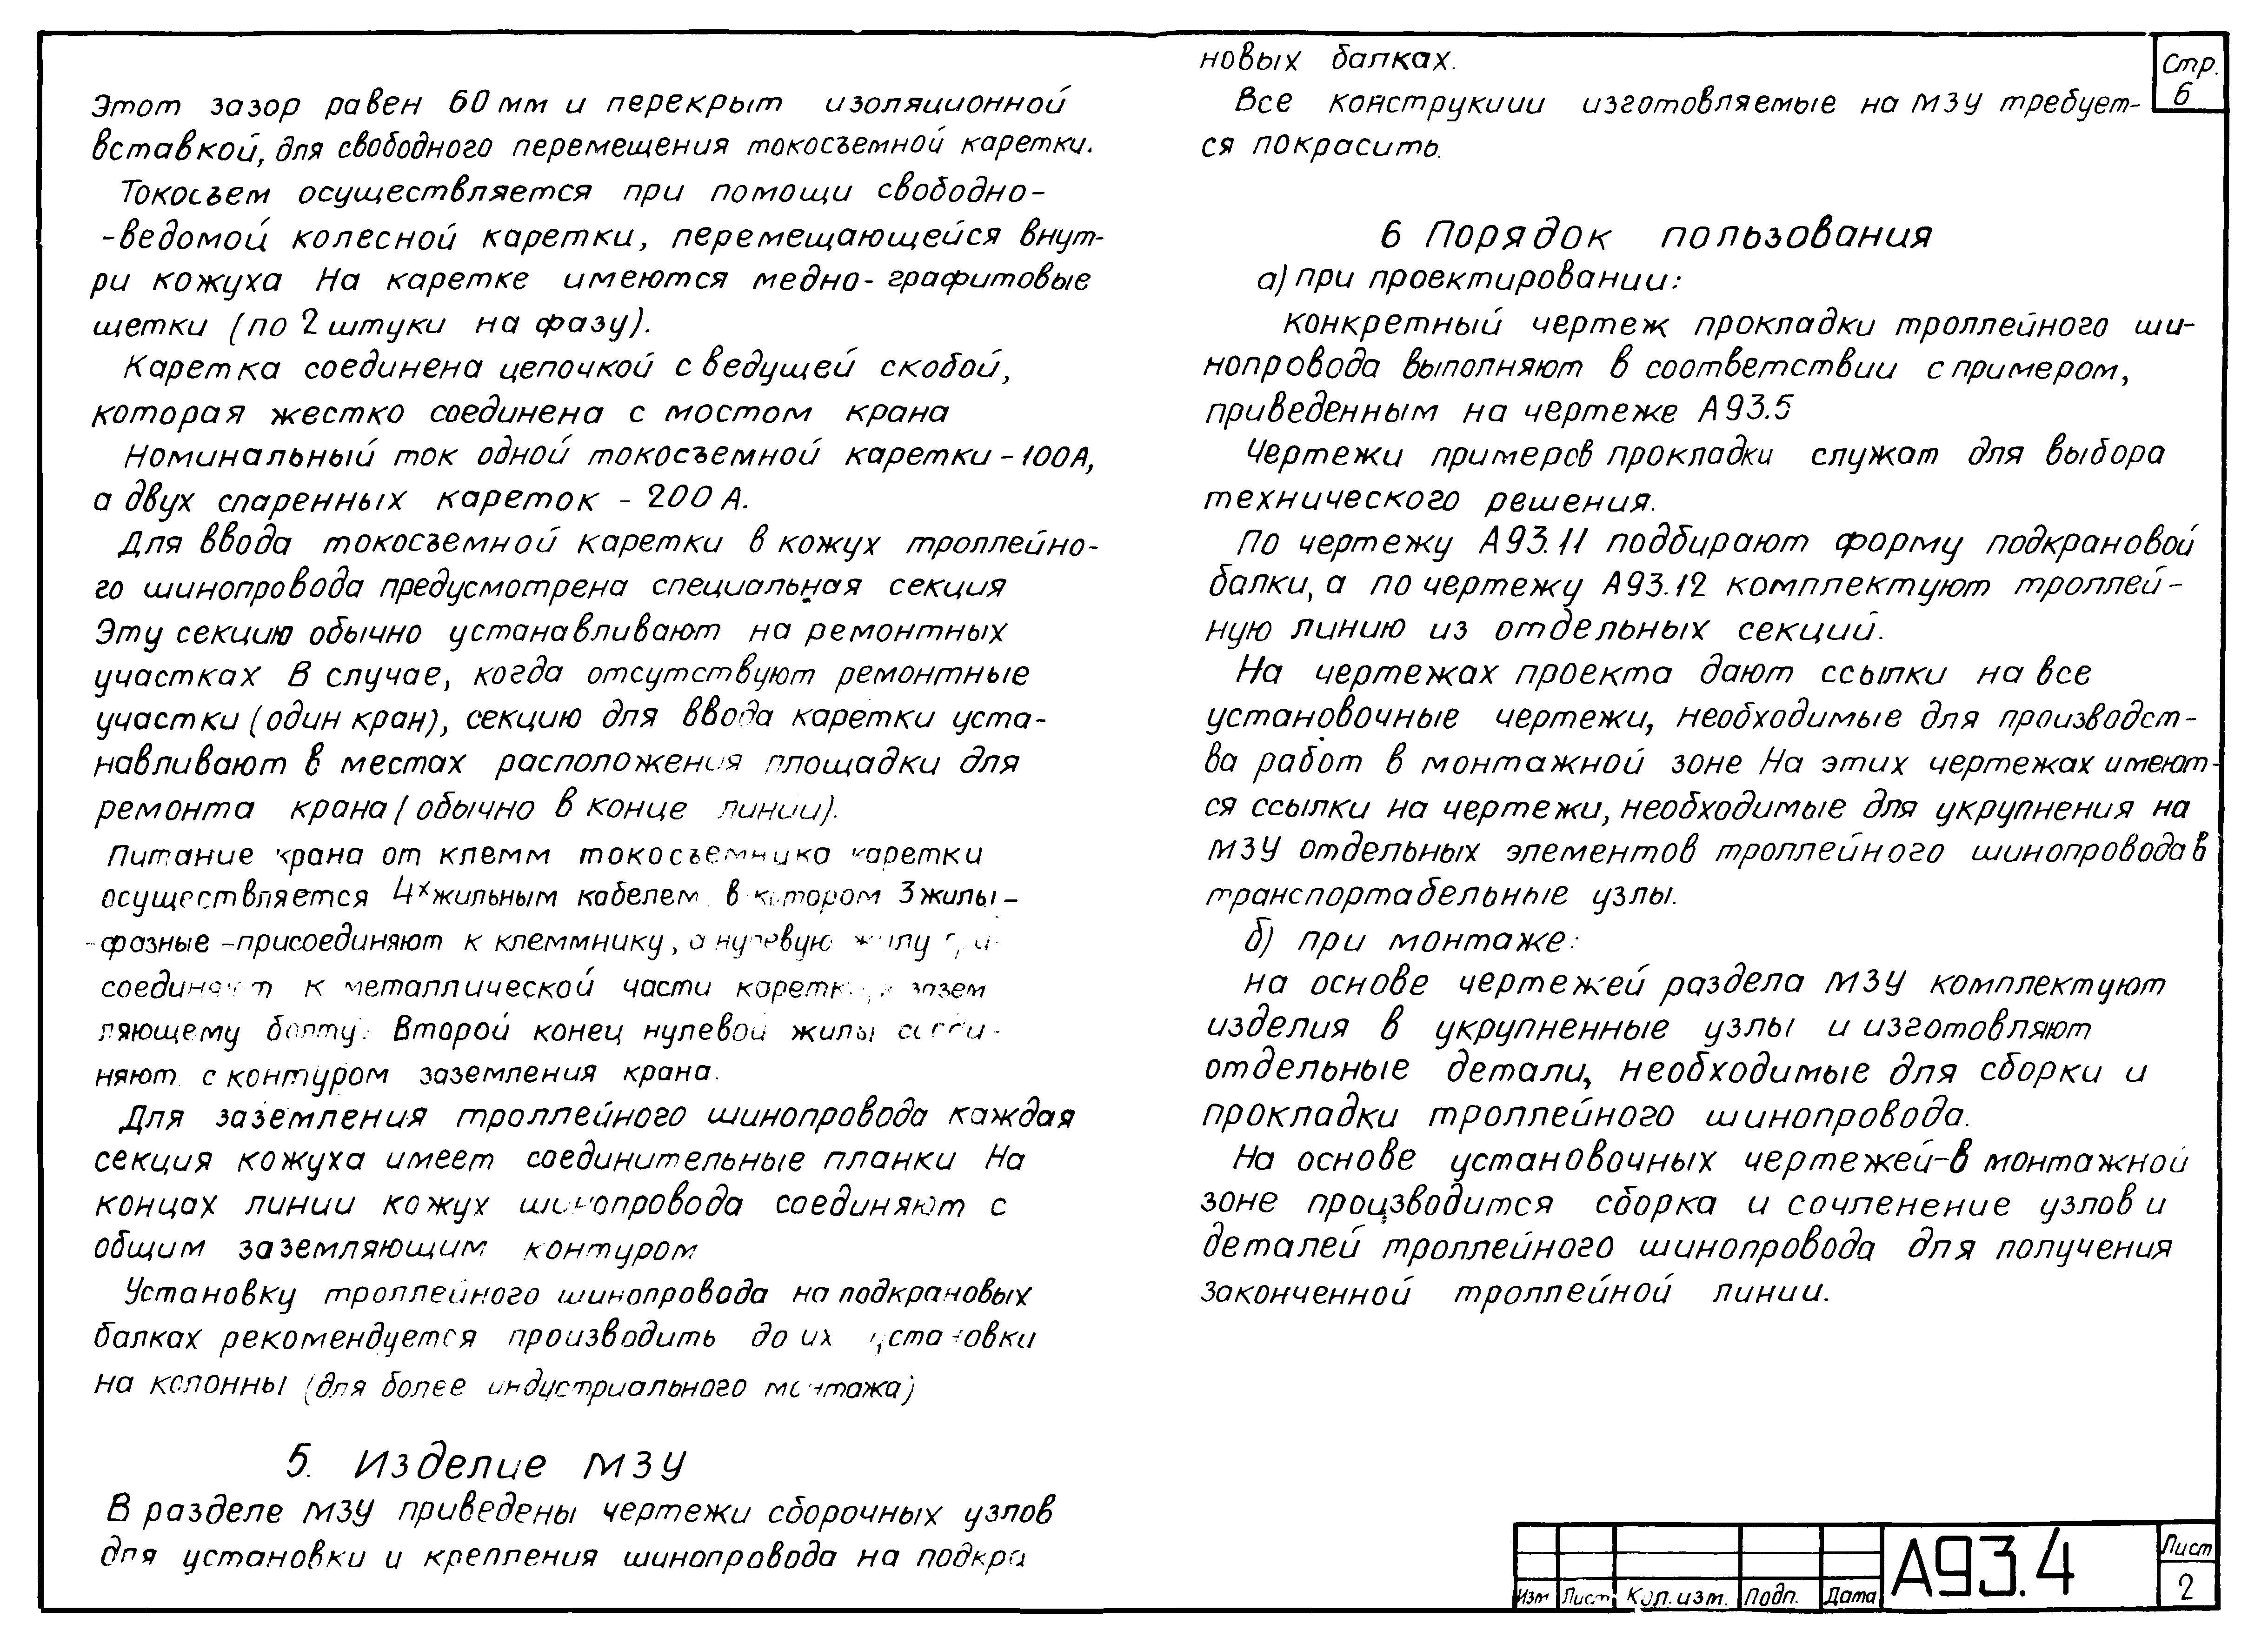 Этот зазор равен 60 мм и перекрыт изоляционной
вставкой, для свободного перемещения токосъемной каретки.
Токосъем осуществляется при помощи свободно-
-ведомой колесной каретки, перемещающейся внут-
ри кожуха На каретке имеются медно-графитовые
щетки (по 2 штуки на фазу).
Каретка соединена цепочкой с ведущей скобой,
которая жестко соединена с мостом крана
Номинальный ток одной токосъемной каретки - 100А,
а двух спаренных кареток - 200 А.
Для ввода токосъемной каретки в кожух троллейно-
го шинопровода предусмотрена специальная секция
Эту секцию обычно устанавливают на ремонтных
участках В случае, когда отсутствуют ремонтные
участки (один кран), секцию для ввода каретки уста-
навливают в местах расположения площадки для
ремонта крана (обычно в конце линии).
Питание крана от клемм токосъемника каретки
осуществляется 4х жильным кабелем в котором 3 жилы -
-фазные - присоединяют к клеммнику, а нулевую жилу при
соединяют к металлической части каретки, зазем
ляющему болту. Второй конец нулевой жилы соеди-
няют с контуром заземления крана.
Для заземления троллейного шинопровода каждая
секция кожуха имеет соединительные планки На
концах линии кожух шинопровода соединяют с
общим заземляющим контуром
Установку троллейного шинопровода на подкрановых
балках рекомендуется производить до их установки
на колонны (для более индустриального монтажа)
5. Изделие МЗУ
В разделе МЗУ приведены чертежи сборочных узлов
для установки и крепления шинопровода на подкра
новых балках.
Все конструкиии изготовляемые на МЗУ требует-
ся покрасить.
6 Порядок пользования
а) при проектировании:
конкретный чертеж прокладки троллейного ши-
нопровода выполняют в соответствии с примером,
приведенным на чертеже А93.5
Чертежи примеров прокладки служат для выбора
технического решения.
По чертежу А93.11 подбирают форму подкрановой
балки, а по чертежу А93.12 комплектуют троллей-
ную линию из отдельных секций.
На чертежах проекта дают ссылки на все
установочные чертежи, необходимые для производст-
ва работ в монтажной зоне На этих чертежах имеют-
ся ссылки на чертежи, необходимые для укрупнения на
МЗУ отдельных элементов троллейного шинопровода в
транспортабельные узлы.
б) при монтаже:
на основе чертежей раздела МЗУ комплектуют
изделия в укрупненные узлы и изготовляют
отдельные детали, необходимые для сборки и
прокладки троллейного шинопровода.
На основе установочных чертежей-в монтажной
зоне производится сборка и сочленение узлов и
деталей троллейного шинопровода для получения
законченной троллейной линии.
Стр.
6
Изм Лист Кол.изм. Подп. Дата
А93.4
Лист
2